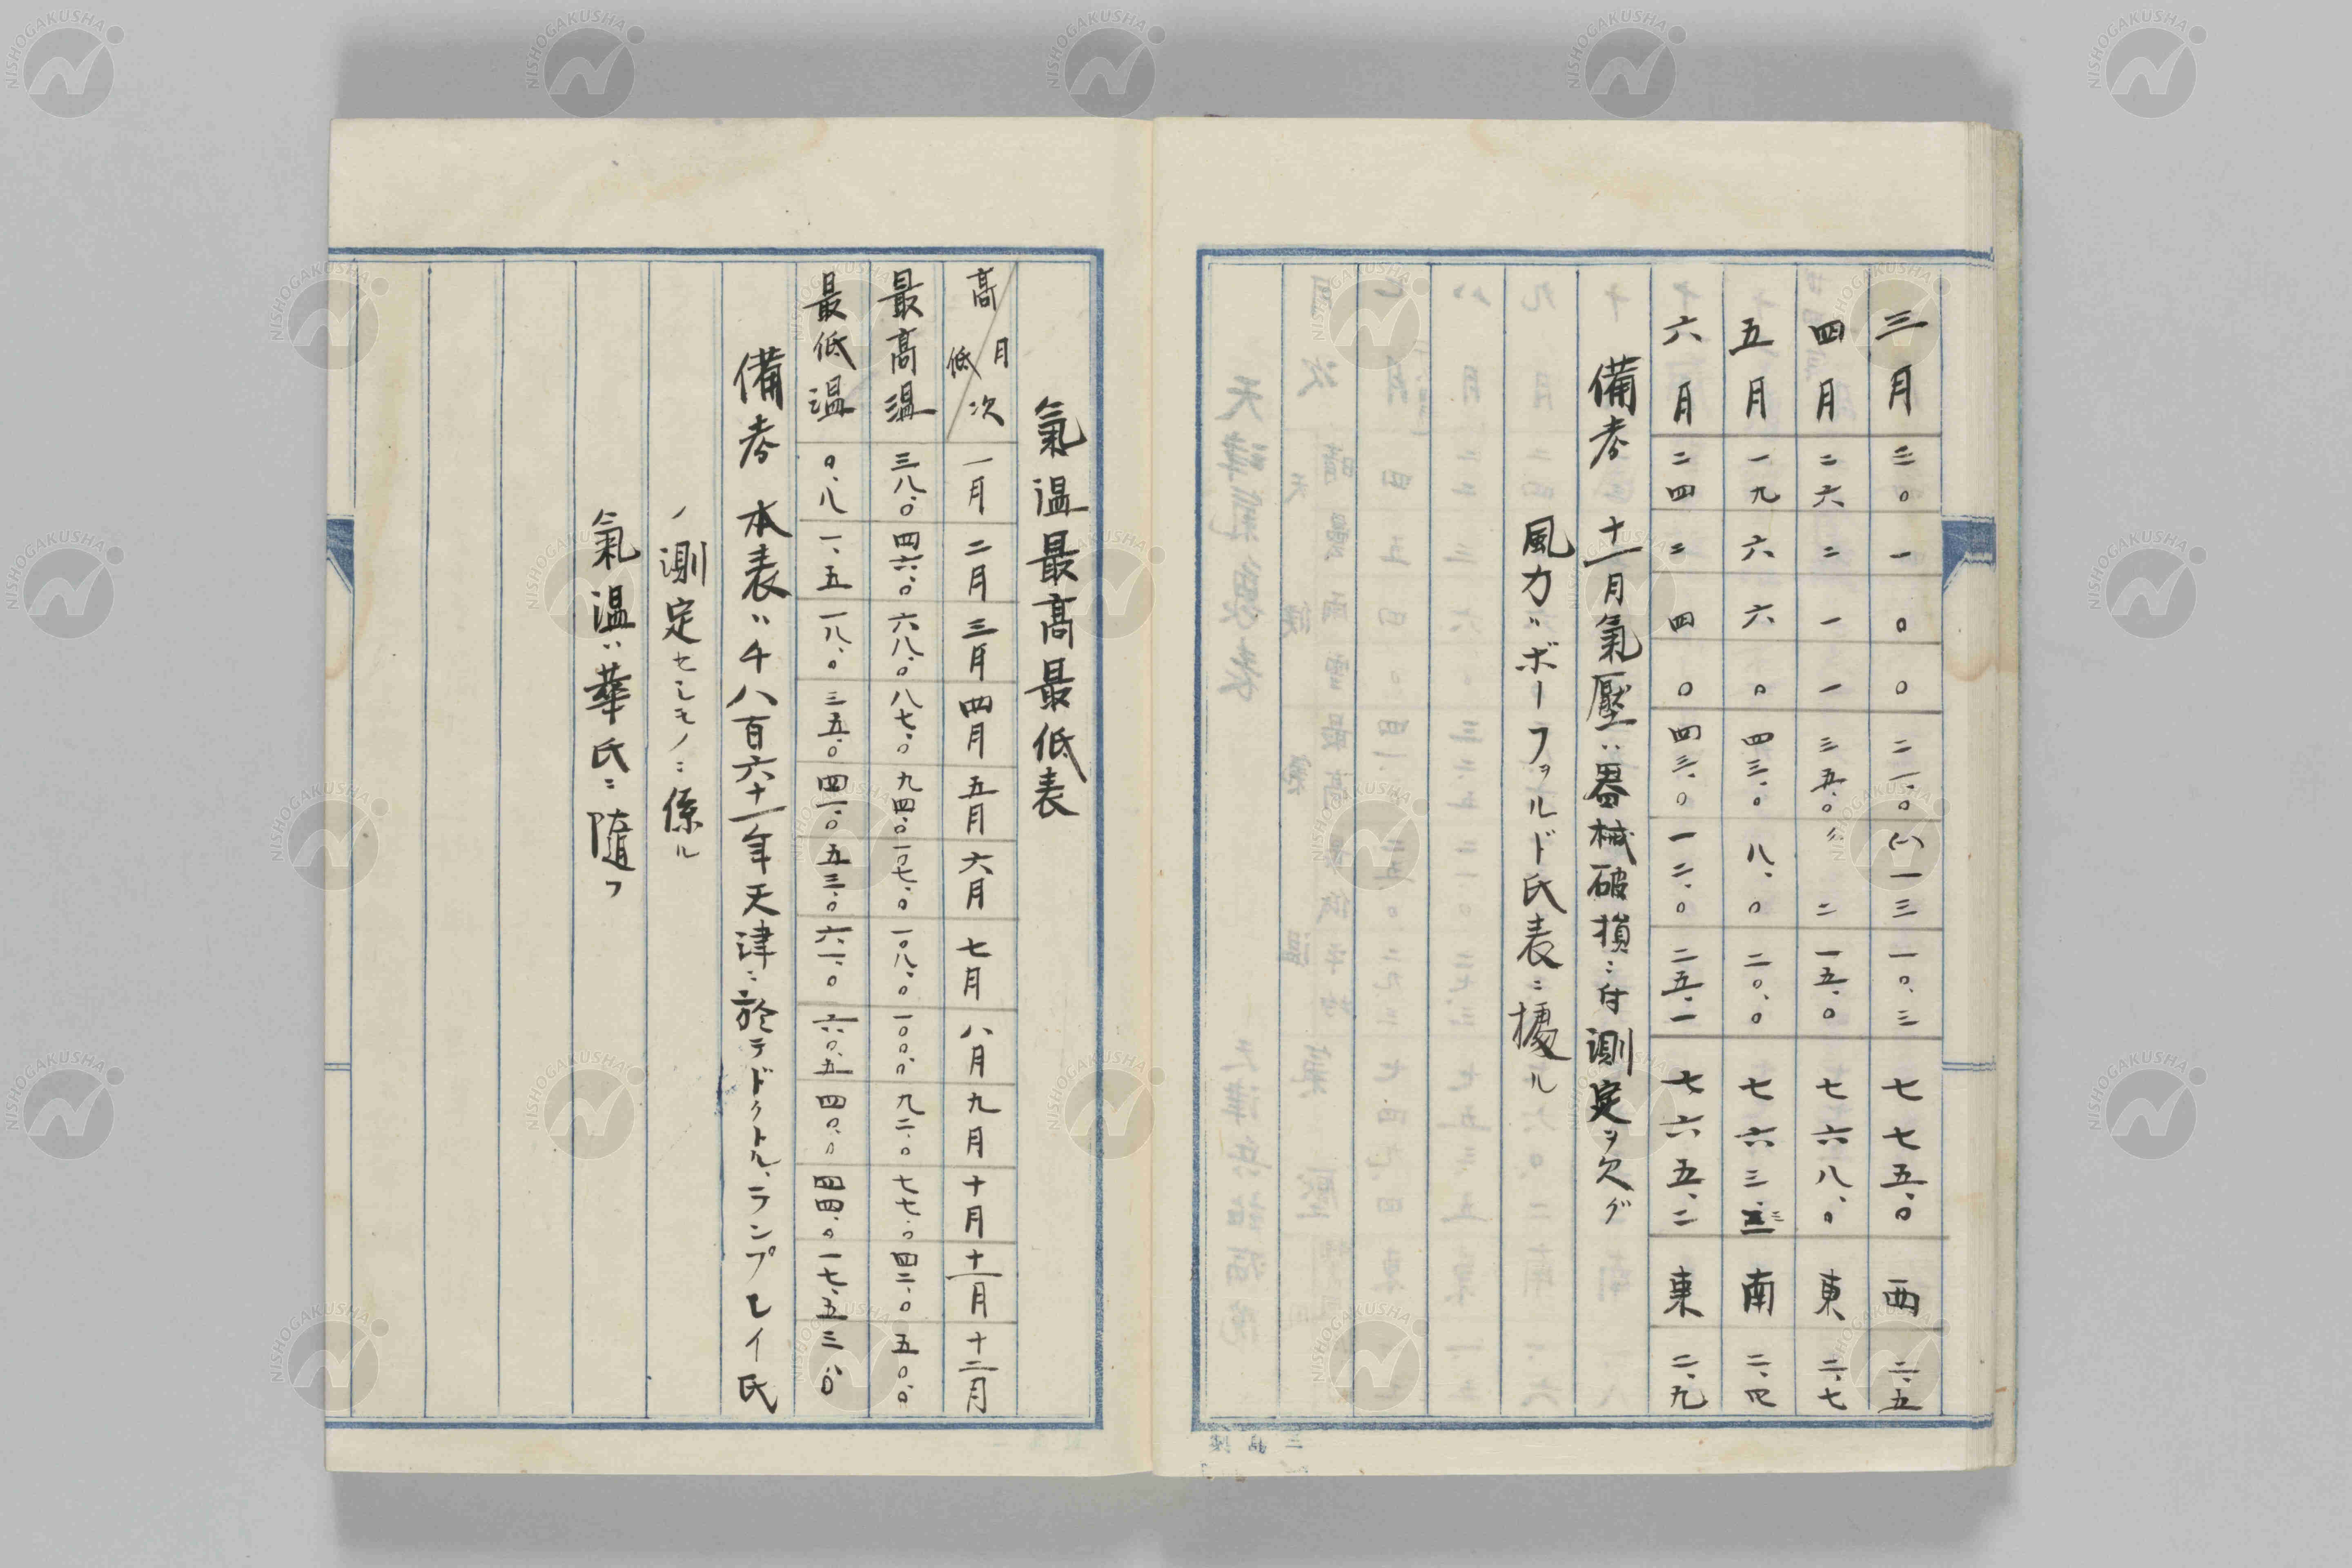 三月 三〇 一 〇 〇 二一、〇 (一)一三 一〇、三 七七五、〇 西 二、五
四月 二六 二 一 一 三五、〇 〃 二 一五、〇 七六八、〇 東 二、七
五月 一九 六 六 〇 四三、〇 八、〇 二〇、〇 七六三、三 南 二、四
六月 二四 二 四 〇 四三、〇 一二、〇 二五、一 七六五、二 東 二、九
備考 十一月氣壓ハ器械破損ニ付測定ヲ欠グ
風力ハボーフヲルド氏表ニ據ル
氣温最高最低表
高低 月次 一月 二月 三月 四月 五月 六月 七月 八月 九月 十月 十一月 十二月
最高温 三八、〇 四六、〇 六八、〇 八七、〇 九四、〇 一〇七、〇 一〇八、〇 一〇〇、〇 九二、〇 七七、〇 四二、〇 五〇、〇
最低温 〇、八 一、五 一八、〇 三五、〇 四一、〇 五三、〇 六一、〇 六〇、五 四〇、〇 四四、〇 一七、五 三、〇
備考 本表ハ千八百六十一年天津ニ於テドクトル、ランプレイ氏
ノ測定セシモノニ係ル
氣温ハ華氏ニ隨フ
NISHOGAKUSHA